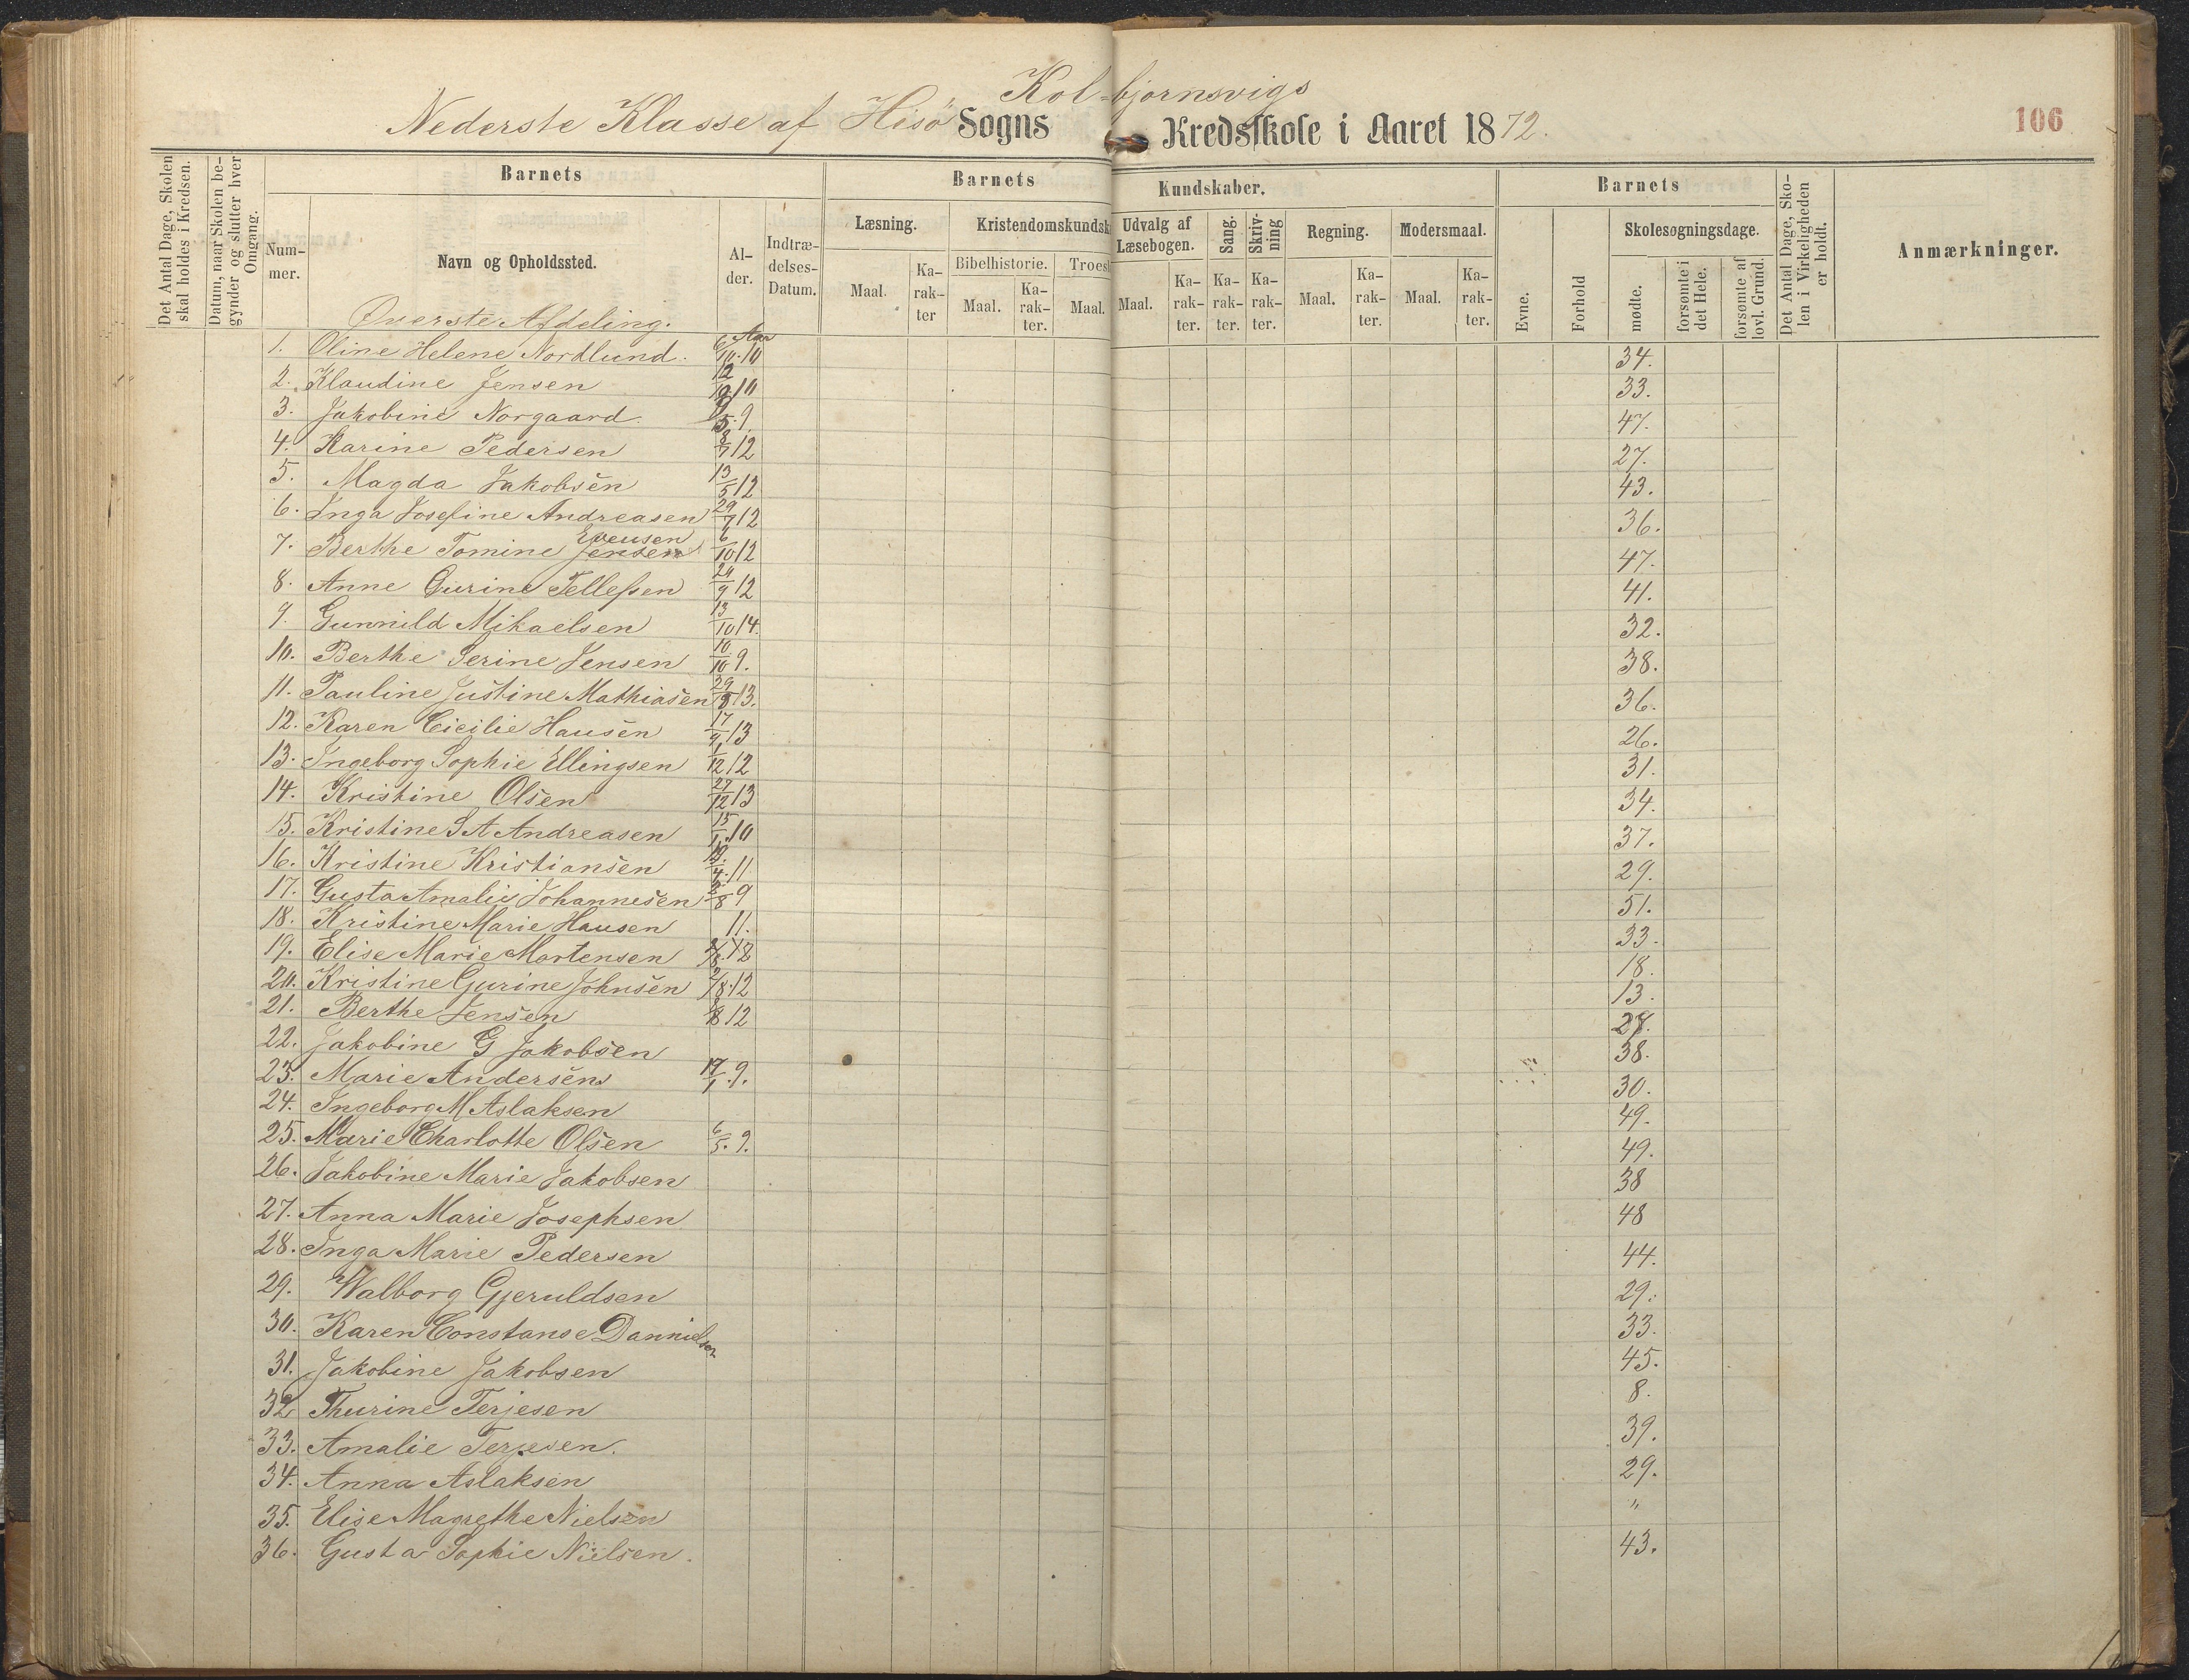 Kolbjørnsvigs
Nederste Klasse af Hisö Sogns Kredsskole i Aaret 1872.
106
Det Antal Dage, Skolen skal holdes i Kredsen.
Datum, naar Skolen begynder og slutter hver Omgang.
Barnets
Barnets Kundskaber.
Barnets
Det Antal Dage, Skolen i Virkeligheden er holdt.
Anmærkninger.
Nummer.
Navn og Opholdssted.
Alder.
Indtrædelses-Datum.
Læsning.
Kristendomskundsk
Udvalg af Læsebogen.
Sang.
Skrivning
Regning.
Modersmaal.
Evne.
Forhold
Skolesøgningsdage.
Bibelhistorie.
Troes
Maal.
Karakter
Maal.
Karakter.
Maal.
Maal.
Karakter.
Karakter.
Karakter.
Maal.
Karakter.
Maal.
Karakter.
mødte.
forsømte i det Hele.
forsømte af lovl. Grund.
Øverste Afdeling.
Aar
1. Oline Helene Nordlund. 6/10 10 34.
2. Klaudine Jensen 12/10 10 33.
3. Jakobine Norgaard. 9. 47.
4. Karine Pedersen 8/7 12 27.
5. Magda Jakobsen 13/5 12 43.
6. Inga Josefine Andreasen 29/7 12 36.
Evensen
7. Berthe Tomine Jensen 6/10 12 47.
8. Anne Gurine Tellefsen 20/9 12 41.
9. Gunnild Mikaelsen 13/10 14. 32.
10. Berthe Serine Jensen 10/10 9. 38.
11. Pauline Justine Mathiasen 29/8 13. 36.
12. Karen Cicilie Hansen 17/9 13 26.
13. Ingeborg Sophie Ellingsen 1/12 12 31.
14. Kristine Olsen 27/12 13 34.
15. Kristine S A Andreasen 15/1 10 37.
16. Kristine Kristiansen 11 29.
17. Gusta Amalie Johannesen 2/8 9 51.
18. Kristine Marie Hansen 11. 33.
19. Elise Marie Mortensen 12 18.
20. Kristine Gurine Johnsen 2/8 12 13.
21. Berthe Jensen 12 28.
22. Jakobine G Jakobsen 38.
23. Marie Andersen 17/1 9. 30.
24. Ingeborg M Aslaksen 49.
25. Marie Charlotte Olsen 6/5. 9. 49.
26. Jakobine Marie Jakobsen 38
27. Anna Marie Josephsen 48
28. Inga Marie Pedersen 44.
29. Walborg Gjeruldsen 29.
30. Karen Constanse Dannielsen 33.
31. Jakobine Jakobsen 45.
32 Thurine Terjesen 8.
33. Amalie Terjesen. 39.
34. Anna Aslaksen 29.
35. Elise Magrethe Nielsen "
36. Gusta Sophie Nielsen. 43.